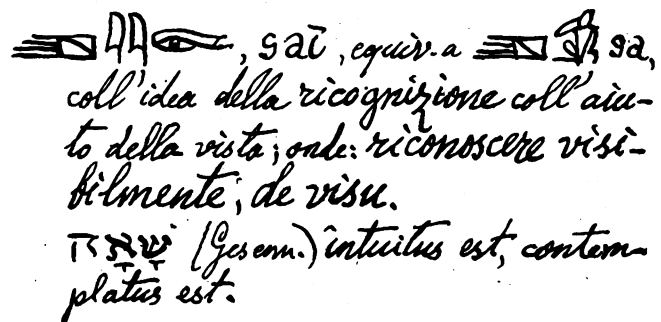 , saī, equiv. a sa,
coll'idea della ricognizione coll'aiu-
to della vista; onde: riconoscere visi-
bilmente, de visu.
שָׁאָה (Gesenn.) intuitus est, contem-
platus est.